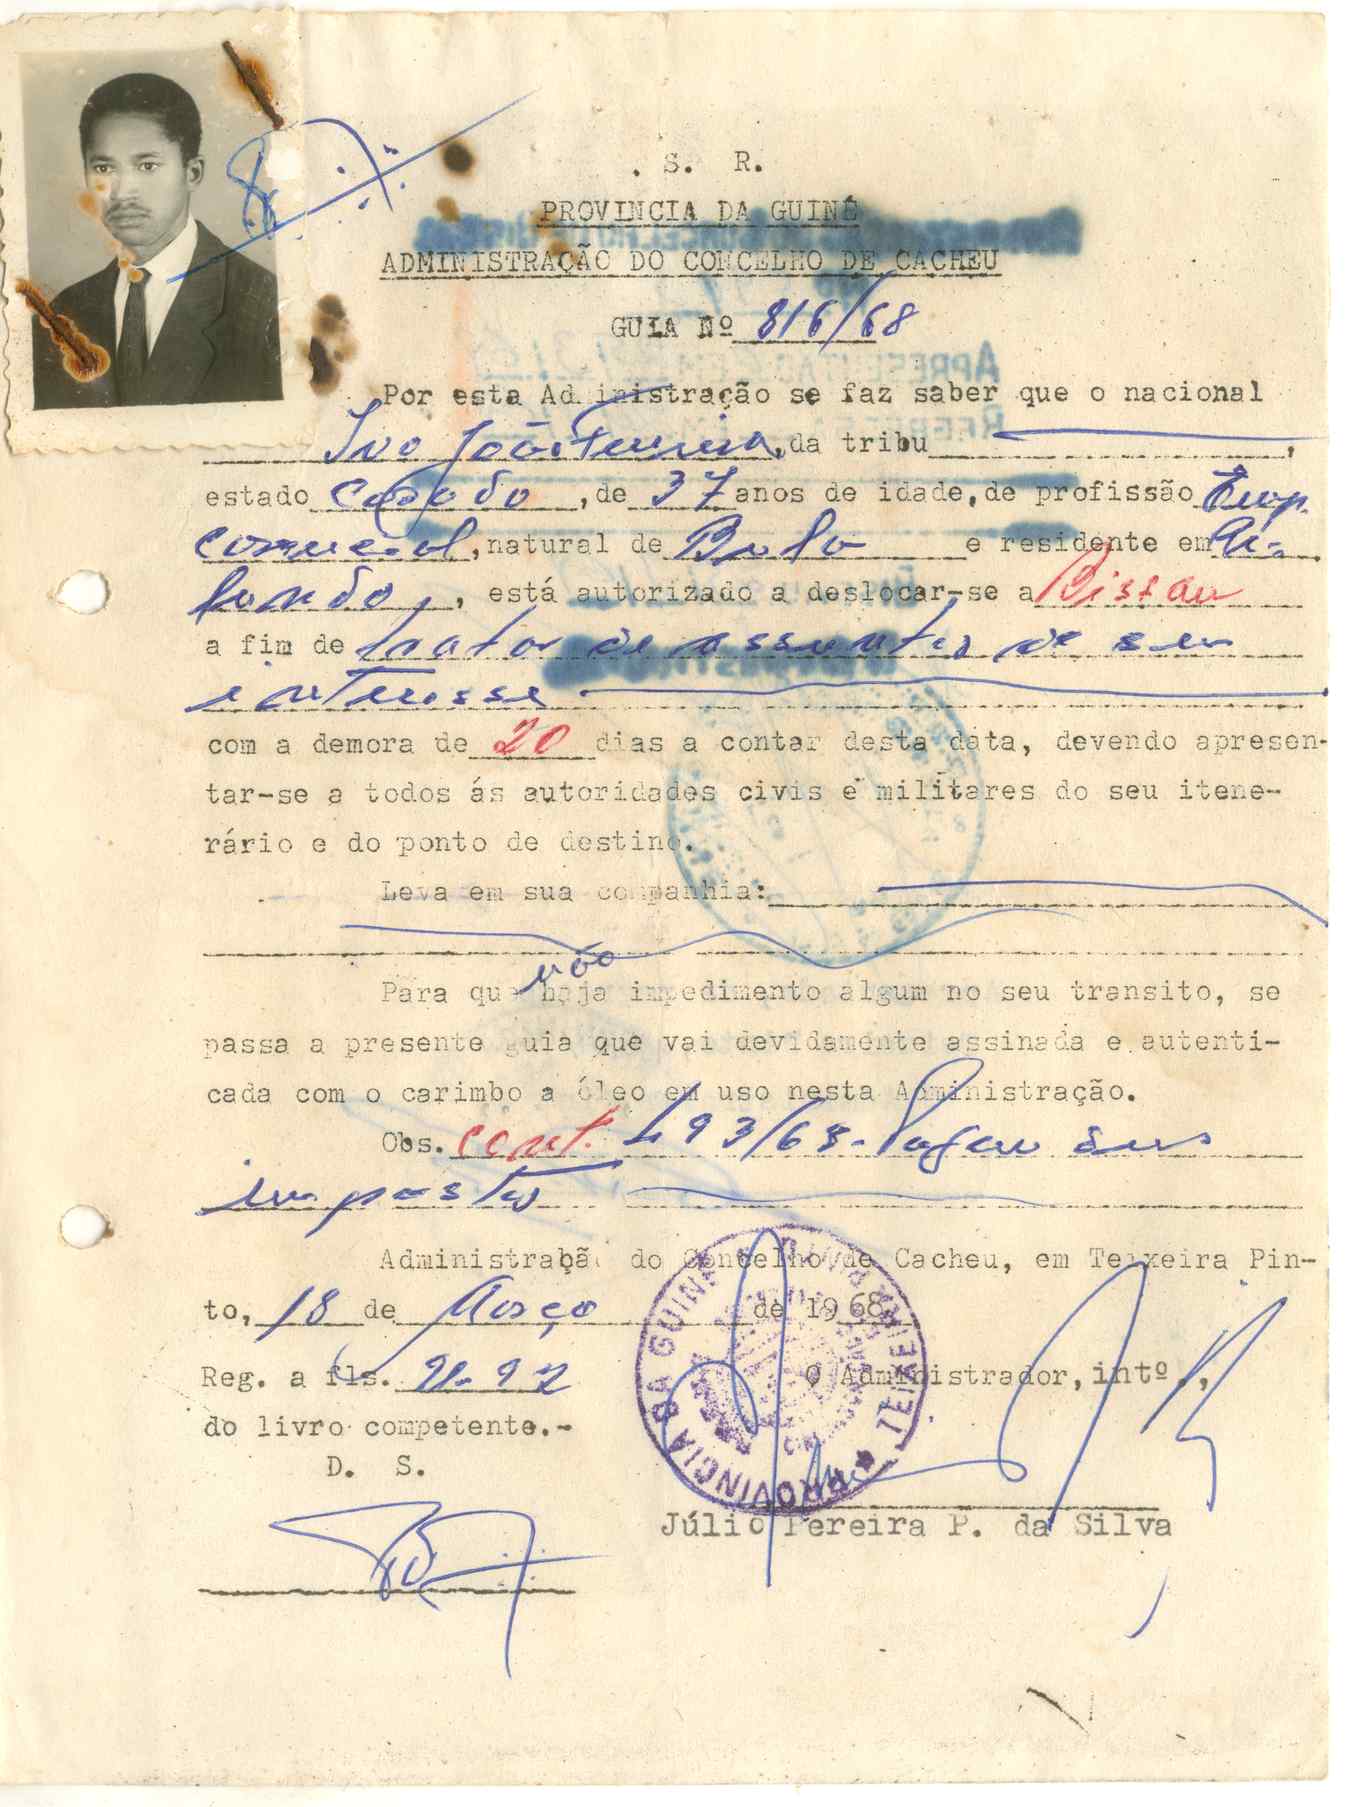 . S. R.
PROVINCIA DA GUINÉ
ADMINISTRAÇÃO DO CONCELHO DE CACHEU
GUIA Nº 816/68
Por esta Ad inistração se faz saber que o nacional
Ivo João Ferreira, da tribu ,
estado casado, de 37 anos de idade, de profissão Emp.
comercial, natural de Bula e residente em
, está autorizado a deslocar-se a Bissau
a fim de tratar de assuntos de seu
interesse
com a demora de 20 dias a contar desta data, devendo apresen-
tar-se a todos ás autoridades civis e militares do seu itene-
rário e do ponto de destino.
Leva em sua companhia:
não
Para que haja impedimento algum no seu transito, se
passa a presente guia que vai devidamente assinada e autenti-
cada com o carimbo a óleo em uso nesta Administração.
Obs. cont. 493/68. Pagou seus
impostos
Administração do Concelho de Cacheu, em Teixeira Pin-
to, 18 de Março de 1968
Reg. a fls. 91-92
O Administrador, intº.,
do livro competente.-
D. S.
PROVINCIA DA GUINÉ
Júlio Pereira P. da Silva